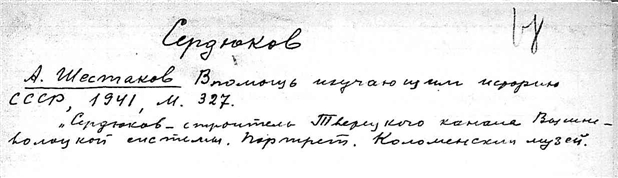 Сердюков
А. Шестаков В помощь изучающим историю
СССР, 1941, М. 327.
„Сердюков – строитель Тверецкого канала Вышне-
волоцкой системы. Портрет. Коломенский музей.